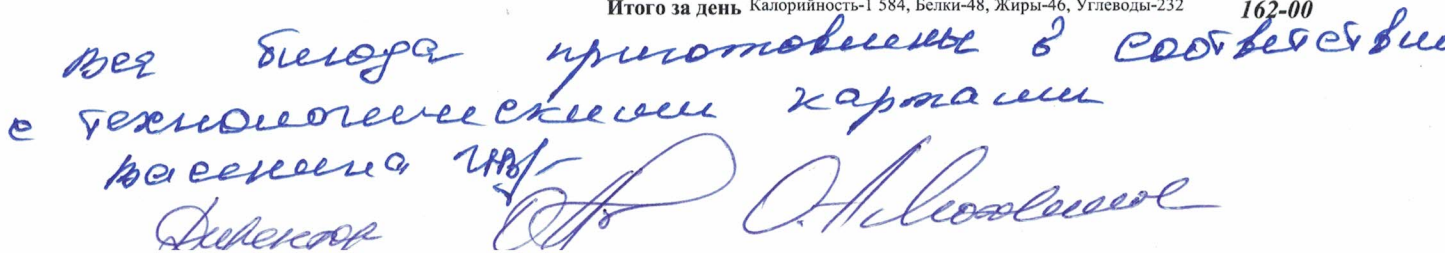 Итого за день Калорийность-1 584, Белки-48, Жиры-46, Углеводы-232 162-00
Все блюда приготовлены в соответствии
с технологическими картами
Васенина
Директор О.А.